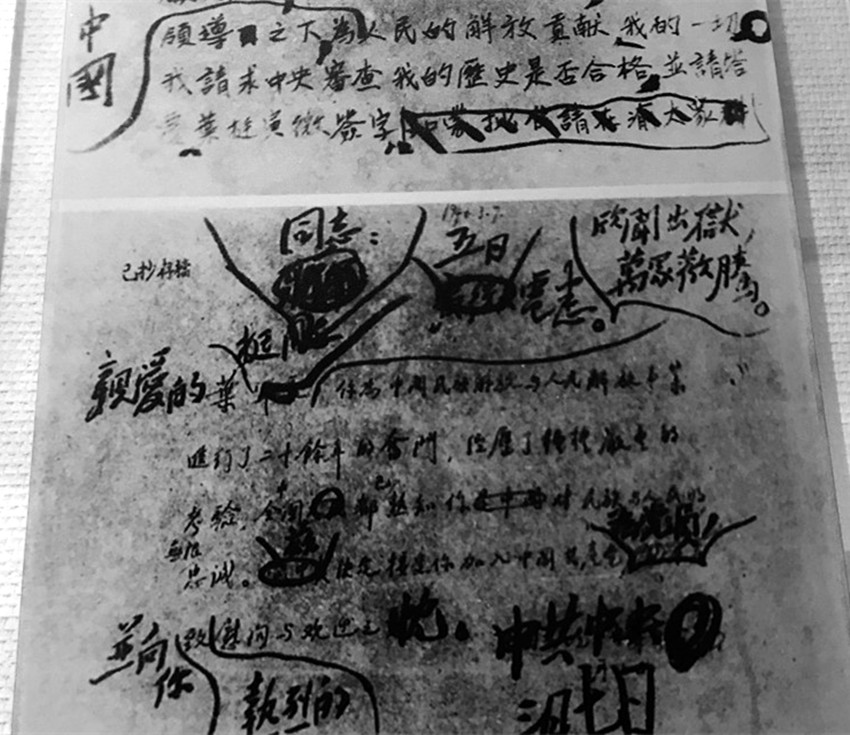 中國
領導之下為人民的解放貢献我的一切
我請求中央審查我的歷史是否合格並請答
葉挺寅微签字
同志：
1946.3.7.
五日
電悉。
欣聞出獄，
萬眾歡騰。
已抄存檔
親愛的葉
挺
你為中國民族解放与人民解放事業
進行了二十餘年的奮鬥，經歷了種種嚴重的
考驗，全國都已熟知你對民族与人民的
無限
忠誠。決定接受你加入中國共產党
為党員，
並向
你
致慰問与歡迎之忱。中共中央
熱烈的
三月七日